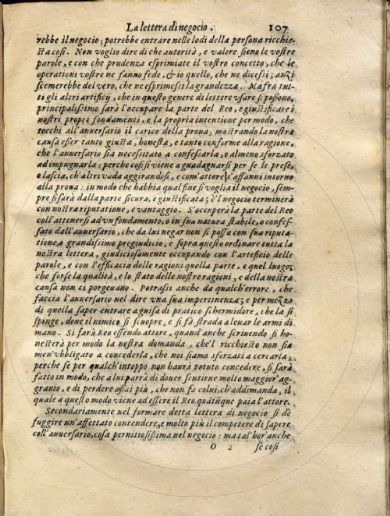 La lettera di negocio. 107
rebbe il negocio; potrebbe entrare nelle lodi della persona richie-
sta cosi. Non voglio dire di che autorità, e valore sieno le vostre
parole, e con che prudenza esprimiate il vostro concetto, che le
operationi vostre ne fanno fede, & io quello, che ne dicessi; anzi
scemerebbe del vero, che ne esprimessi la grandezza. Ma fra tut-
ti gli altri artificij, che in questo genere di lettere usar si possono,
principalissimo sarà l'occupare la parte del Reo, e giustificare i
nostri proprij fondamenti, e la propria intentione per modo, che
tocchi all'auuersario il carico della proua, mostrando la nostra
causa esser tanto giusta, honesta, e tanto conforme alla ragione,
che l'auuersario sia necessitato a confessarla, o almeno sforzato
ad impugnarla; perche cosi si viene a guadagnarsi per se le prese,
e lascia, ch'altri vada aggirandosi, e com'attore s'affanni intorno
alla proua: in modo che habbia qual fine si voglia il negocio, sem-
pre si sarà dalla parte sicura, e giustificata; & il negocio terminerà
con nostra riputatione, e vantaggio. S'occuperà la parte del Reo
coll'attenersi ad vn fondamento, o in sua natura stabile, o confes-
sato dall'auuersario, che da lui negar non si possa con sua riputa-
tione, o grandissimo pregiudicio, e sopra questo ordinare tutta la
nostra lettera, giudiciosamente occupando con l'arteficio delle
parole, e con l'efficacia delle ragioni quella parte, e quel luogo;
che forse la qualità, e lo stato delle nostre ragioni, e della nostra
causa non ci porgeano. Potrassi anche da qualch'errore, che
faccia l'auuersario nel dire vna sua impertinenza; e per mezzo
di quella saper entrare a guisa di pratico schermidore, che la si
spinge, doue il nimico si scuopre, e si fà strada a leuar le armi di
mano. Si farà Reo essendo attore, quand anche scriuendo si ho-
nesterà per modo la nostra domanda, che'l richiesto non sia
men'vbbligato a concederla, che noi siamo sforzati a cercarla;
perche se per qualch'intoppo non haurà potuto concedere, si sarà
fatto in modo, che a lui parà di douer sentirne molto maggior'ag-
grauio, e di perdere assai più, che non fà colui, ch'addimanda, il
quale a questo modo viene ad essere il Reo quātūque paia l'attore.
Secondariamente nel formare detta lettera di negocio si dè
fuggire un'affettato contendere, e molto più il competere di sapere
coll'auuersario, cosa pernitiosissima nel negocio: ma tal'hor'anche
O 2 se cosi